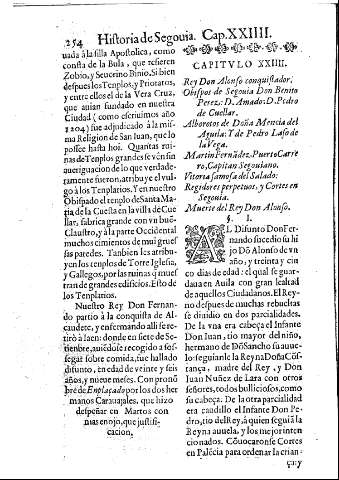 254 Historia de Segouia. Cap. XXIIII.
uada à la silla Apostolica, como
consta de la Bula, que refieren
Zobio, y Seuerino Binio. Si bien
despues los Tenplos, y Prioratos,
y entre ellos el de la Vera Cruz,
que auian fundado en nuestra
Ciudad (como escriuimos año
1204) fue adjudicado à la mis-
ma Religion de San Iuan, que lo
possee hasta hoy. Quantas rui-
nas de Tenplos grandes se vẽn sin
aueriguacion de lo que verdade-
ramente fueron, atribuye el vul-
go à los Tenplarios. Y en nuestro
Obispado el tenplo de Santa Ma-
ria de la Cuesta en la villa de Cue-
llar, fabrica grande con vn buẽ
Claustro, y à la parte Occidental
muchos cimientos de mui grues
sas paredes. Tanbien les atribu-
yen los tenplos de Torre Iglesia,
y Gallegos, por las ruinas q̃ mues
tran de grandes edificios. Esto de
los Tenplarios.
Nuestro Rey Don Fernan-
do partio à la conquista de Al-
caudete, y enfermando alli se re-
tirò à Iaen: donde en siete de Se-
tienbre, auiẽdose recogido a sos-
segar sobre comida, fue hallado
difunto, en edad de veinte y seis
años, y nueue meses. Con pronõ
bre de Enplaçado por los dos her
manos Carauajales, que hizo
despeñar en Martos con
mas enojo, que justifi-
cacion.
CAPITVLO XXIIII.
Rey Don Alonso conquistador.
Obispos de Segouia Don Benito
Perez: D. Amado: D. Pedro
de Cuellar.
Alborotos de Doña Mencia del
Aguila: Y de Pedro Laso de
la Vega.
Martin Fernãdez, Puerto Carre
ro, Capitan Segouiano.
Vitoria famosa del Salado:
Regidores perpetuos, y Cortes en
Segouia.
Muerte del Rey Don Alonso.
§. I.
AL Difunto Don Fer-
nando sucedio su hi
jo Dõ Alonso de vn
año, y treinta y cin
co dias de edad: el qual se guar-
daua en Auila con gran lealtad
de aquellos Ciudadanos. El Rey-
no despues de muchas rebueltas
se diuidio en dos parcialidades.
De la vna era cabeça el Infante
Don Iuan, tio mayor del niño,
hermano de Dõ Sancho su auue-
lo: seguianle la Reyna Doña Cõs-
tança, madre del Rey, y Don
Iuan Nuñez de Lara con otros
señores, todos bulliciosos, como
su cabeça. De la otra parcialidad
era caudillo el Infante Don Pe-
dro, tio del Rey, à quien seguiã la
Reyna auuela, y los mejor inten
cionados. Cõuocaronse Cortes
en Palẽcia para ordenar la crian-